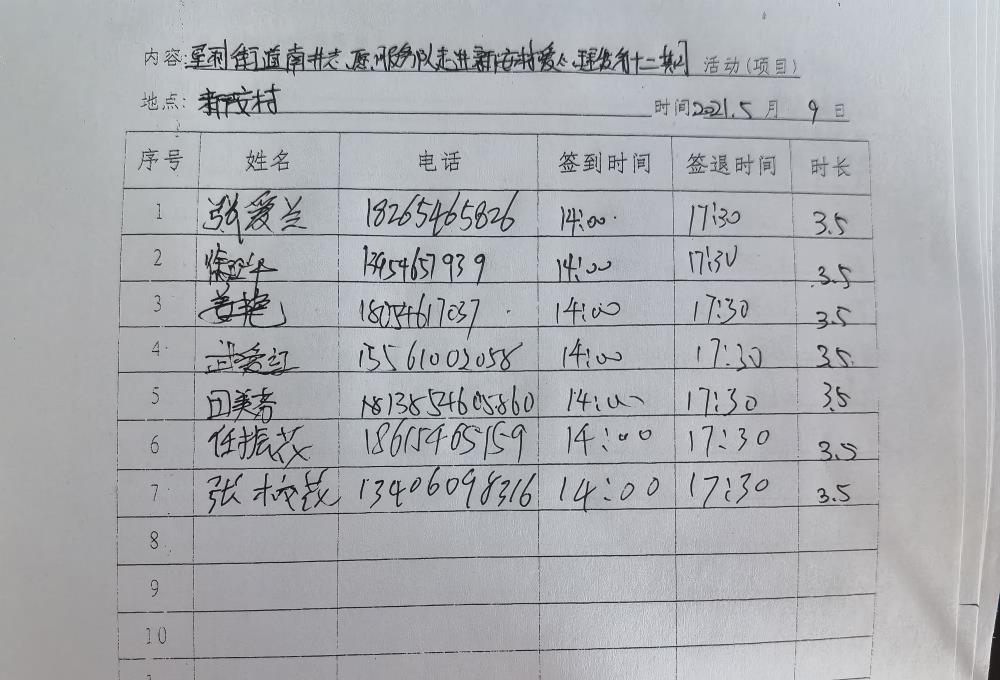 内容: 垦利街道南井志愿服务队走进新安村爱心理发第十二期 活动(项目)
地点: 新安村 时间 2021.5 月 9 日
序号 姓名 电话 签到时间 签退时间 时长
1 张爱兰 18265465826 14:00 17:30 3.5
2 13954657939 14:00 17:30 3.5
3 姜艳 18054617037 14:00 17:30 3.5
4 武爱红 13561002058 14:00 17:30 3.5
5 田美芳 14:00 17:30 3.5
6 任振茂 18615465159 14:00 17:30 3.5
7 张树茂 13406098316 14:00 17:30 3.5
8
9
10